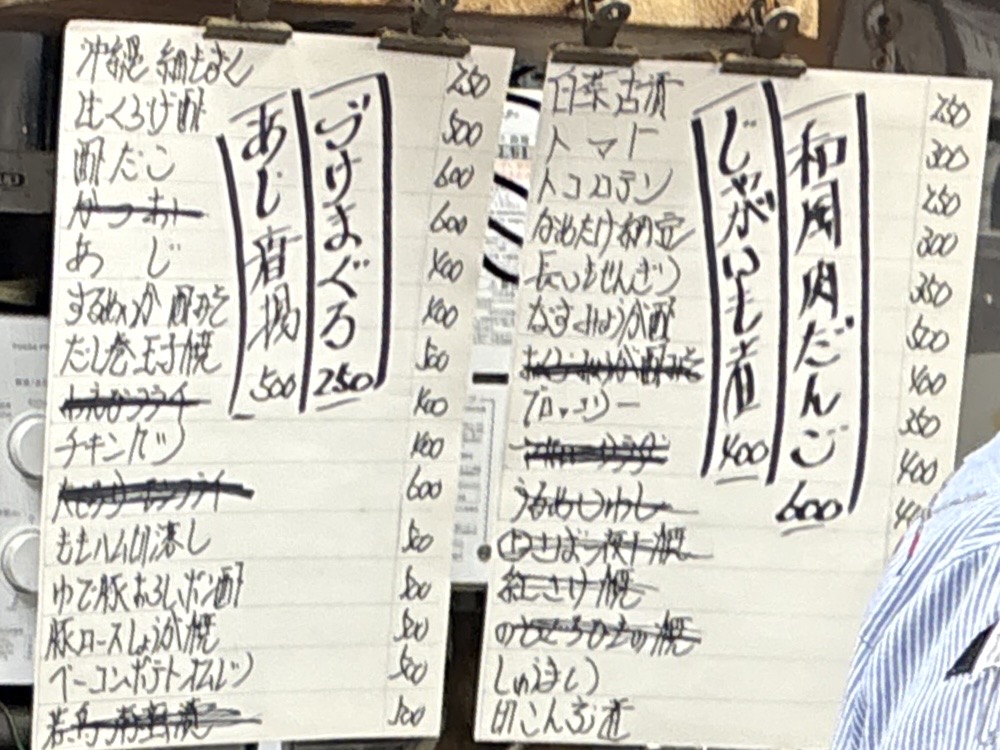 沖縄 細もずく 250
生くらげ酢 500
酢だこ 600
かつお 600
あじ 400
するめいか 酢みそ 400
だし巻玉子焼 500
400
チキンカツ 400
600
ももハム切落し 500
ゆで豚おろしポン酢 500
豚ロースしょうが焼 500
ベーコンポテトオムレツ 500
若鳥 500
づけまぐろ 250
あじ唐揚 500
白菜古漬 250
トマト 300
トコロテン 250
なめたけ納豆 300
長いもせんぎり 350
なすみょうが酢 500
400
ブロッコリー 350
400
うるめいわし
さば 焼
紅さけ焼
焼
しゅうまい
切こんぶ煮
和風肉だんご 600
じゃがいも煮 400